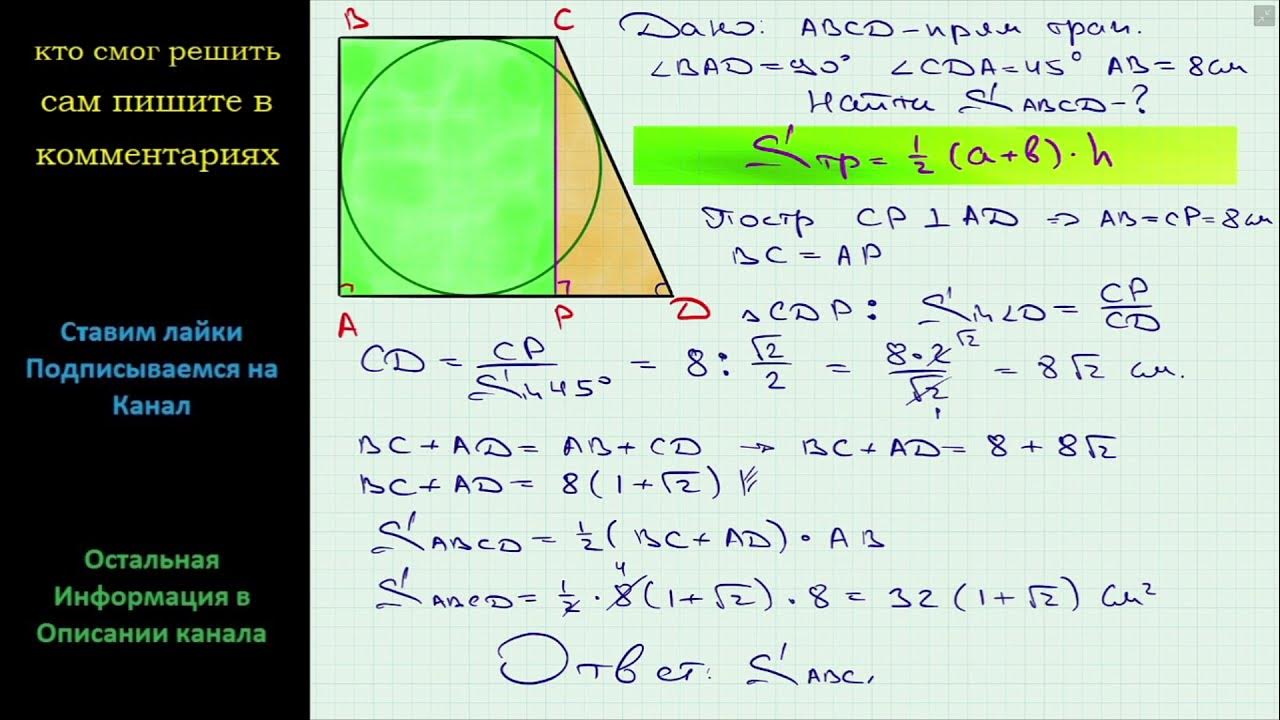 кто смог решить
сам пишите в
комментариях
Ставим лайки
Подписываемся на
Канал
Остальная
Информация в
Описании канала
B C
A P D
Дано: ABCD – прям трап.
∠BAD = 90° ∠CDA = 45° AB = 8 см
Найти S ABCD – ?
S тр = 1/2 (a + b) · h
Постр CP ⊥ AD ⇒ AB = CP = 8 см
BC = AP
△CDP: Sin∠D = CP/CD
CD = CP/Sin 45° = 8 : √2/2 = 8·2/√2 = 8√2 см.
√2
1
BC + AD = AB + CD → BC + AD = 8 + 8√2
BC + AD = 8(1 + √2)
S ABCD = 1/2 (BC + AD) · AB
4
S ABCD = 1/2 · 8(1 + √2) · 8 = 32 (1 + √2) см²
Ответ: S ABC